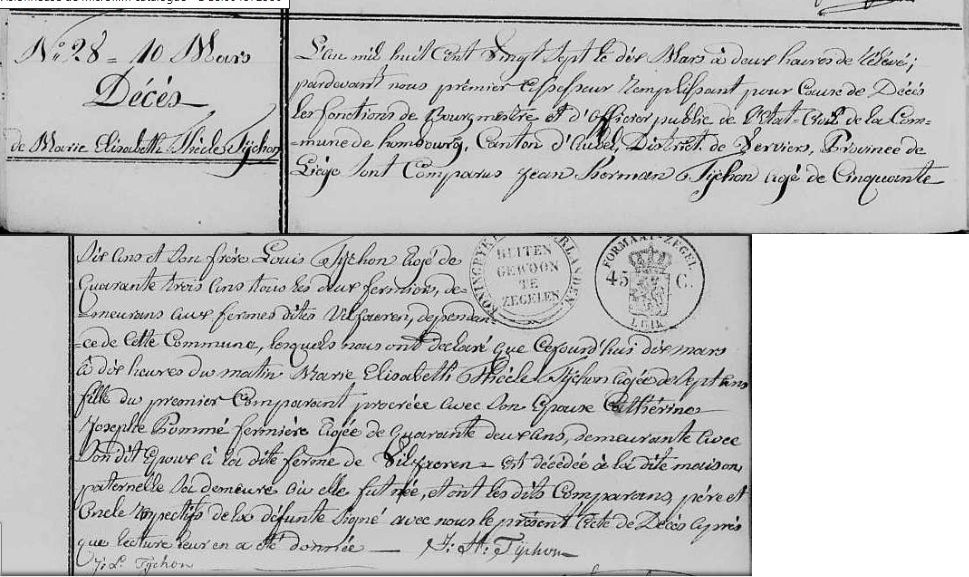 N.º 28 = 10 Mars
Décès
de Marie Elisabeth Thiècle Tychon
L'an mil huit Cent Vingt Sept le dix Mars à deux heures de relévé;
pardevant nous prémier assesseur remplissant pour Cause de Décès
les fonctions de Bourgmestre et d'officier public de l'Etat-Civil de la Com=
=mune de hombourg, Canton d'Aubel, District de Verviers, Province de
Liége sont Comparus Jean Herman Tychon agé de Cinquante
Six ans et son frère Louis Tychon agé de
Quarante trois ans tous les deux fermiers, de=
=meurans aux fermes dites Vilfaeren, dependan=
=ce de Cette Commune, lesquels nous ont declaré que Cejourd'hui dix mars
à dix heures du matin Marie Elisabeth Thiècle Tychon agée de Sept ans
fille du premier Comparant procréée avec Son Epouse Cathérine
Josephe Pommé fermière agée de Quarante deux ans, demeurante avec
Son dit Epoux à la dite ferme de Vilfaeren = est décédée à la dite maison
paternelle Sa demeure où elle fut née, et ont les dits Comparans, père et
Oncle respectifs de la défunte Signé avec nous le présent acte de Décès après
que lecture leur en a été donnée — J: H: Tychon
J: L: Tychon
KONINGRYK NEDERLANDEN
BUITEN
GEWOON
TE
ZEGELEN
FORMAAT-ZEGEL
45 C.
LUIK